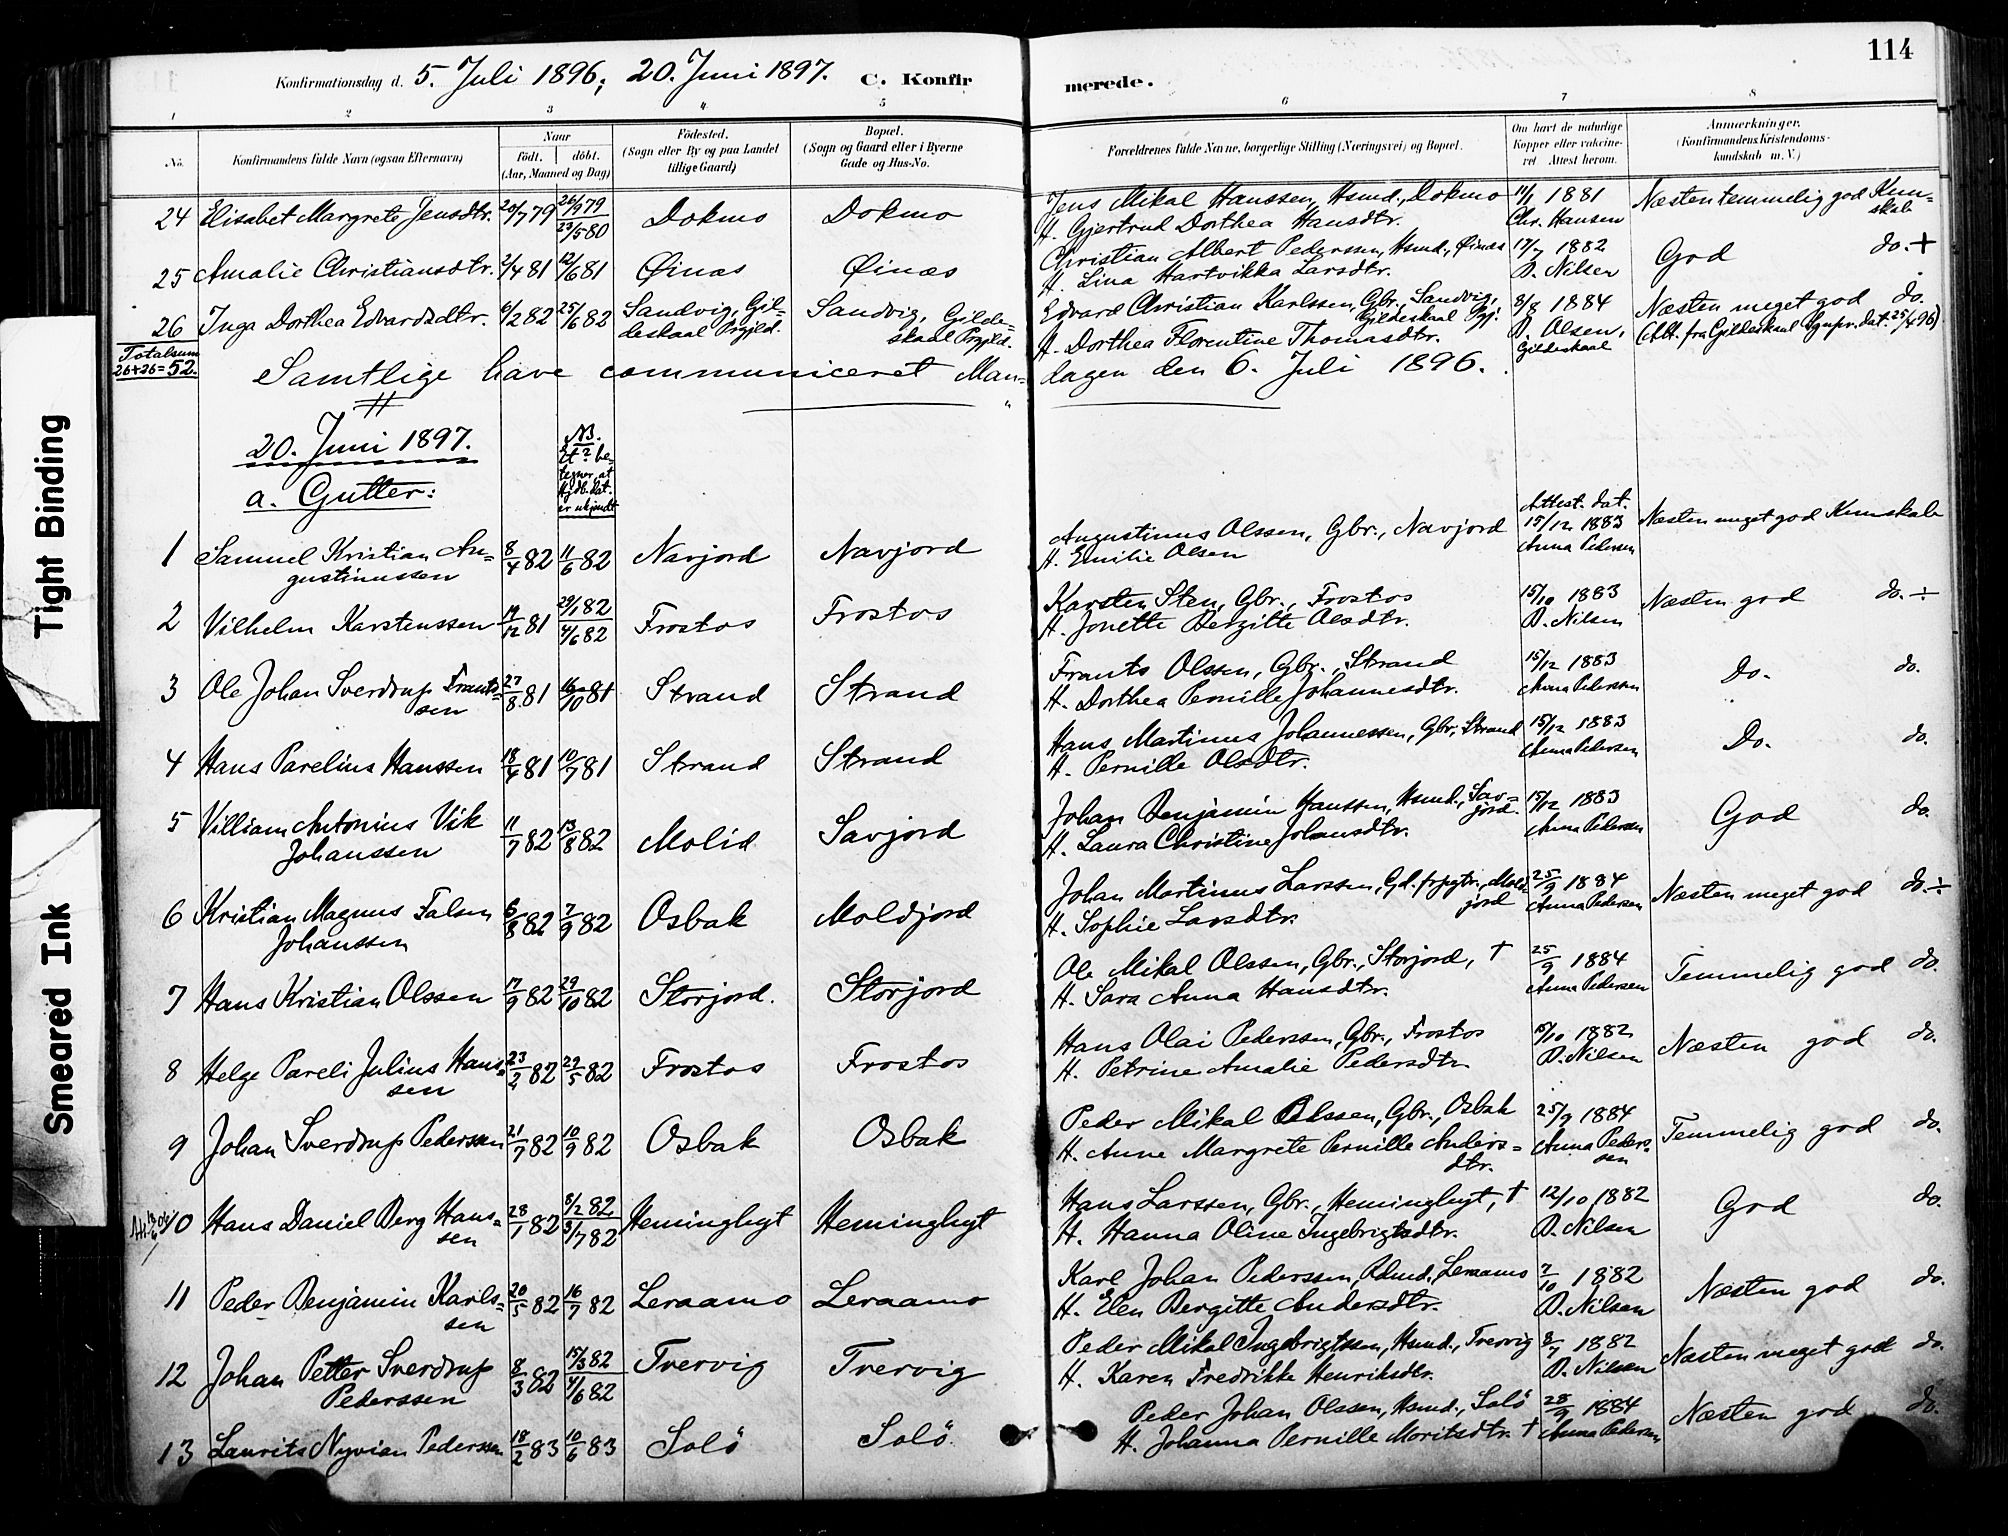 114
Konfirmationsdag d. 5. Juli 1896; 20. Juni 1897. C. Konfirmerede.
1 2 3 4 5 6 7 8
No. Konfirmandens fulde Navn (ogsaa Efternavn) Naar født. døbt. (Aar, Maaned og Dag) Fødested. (Sogn eller By og paa Landet tillige Gaard) Bopæl. (Sogn og Gaard eller i Byerne Gade og Hus-No. Forældrenes fulde Navne, borgerlige Stilling (Næringsvei) og Bopæl. Om havt de naturlige Kopper eller vaccineret Attest herom. Anmærkninger. (Konfirmandens Kristendomskundskab m. V.)
24 Elisabet Margrete Jensdtr. 20/7 79 26/9 79 Dokmo Dokmo Jens Mikal Hanssen, Hsmd., Dokmo 11/1 1881 Næsten temmelig god Kun-
23/5 80 H. Gjertrud Dorthea Hansdtr. Chr. Hansen skab
25 Amalie Christiansdtr. 2/4 81 12/6 81 Øinæs Øinæs Christian Albert Pederssen, Hsmd., Øinæs 17/7 1882 God do. +
H. Lina Hartvikka Larsdtr. D. Nilsen
26 Inga Dorthea Edvardsdtr. 6/2 82 25/6 82 Sandvig, Gil- Sandvig, Gilde- Edvard Christian Karlssen, Gbr., Sandvig, 8/8 1884 Næsten meget god do.
deskaal Prgjld. skaal Prgjld. Gildeskaal Pgj. D. Olsen, (Att. fra Gildeskaal Sgnpr. dat. 25/4 96)
H. Dorthea Florentine Thomasdtr. Gildeskaal
Totalsum
26+26=52.
Samtlige have communiceret Man- dagen den 6. Juli 1896.
20. Juni 1897.
a. Gutter:
NB.
Et ? be-
tegner, at
Hjdb. dat.
er ukjendt
Attest. dat.
1 Samuel Kristian Au- 8/4 82 11/6 82 Navjord Navjord Augustinus Olssen, Gbr., Navjord 15/12 1883 Næsten meget god Kunskab
gustinussen H. Emilie Olsen Anna Pedersen
2 Vilhelm Karstenssen 19/12 81 29/1 82 Frostos Frostos Karsten Sten, Gbr., Frostos 15/10 1883 Næsten god do. ÷
4/6 82 H. Jonette Bergitte Olsdtr. D. Nilsen
3 Ole Johan Sverdrup Frants- 27/8 81 16/10 81 Strand Strand Frants Olssen, Gbr., Strand 15/12 1883 Do. do.
sen H. Dorthea Pernille Johannesdtr. Anna Pedersen
4 Hans Parelius Hanssen 18/4 81 10/7 81 Strand Strand Hans Martinus Johannessen, Gbr., Strand 15/12 1883 Do. do.
H. Pernille Olsdtr. Anna Pedersen
5 Villiam Antonius Vik 11/7 82 13/8 82 Molid Savjord Johan Benjamin Hanssen, Hsmd., Sav- 15/12 1883 God do.
Johanssen jord. H. Laura Christine Johansdtr. Anna Pedersen
6 Kristian Magnus Falsen 6/8 82 7/9 82 Osbak Moldjord Johan Martinus Larssen, Gd.frpgtr., Mold- 25/9 1884 Næsten meget god do. ÷
Johanssen jord H. Sophie Larsdtr. Anna Pedersen
7 Hans Kristian Olssen 17/9 82 29/10 82 Storjord. Storjord Ole Mikal Olssen, Gbr., Storjord, † 25/9 1884 Temmelig god do.
H. Sara Anna Hansdtr. Anna Pedersen
8 Helge Pareli Julius Hans- 23/2 82 29/5 82 Frostos Frostos Hans Olai Pederssen, Gbr., Frostos 15/10 1882 Næsten god do.
sen H. Petrine Amalie Pedersdtr. D. Nilsen
9 Johan Sverdrup Pederssen 21/7 82 10/9 82 Osbak Osbak Peder Mikal Olssen, Gbr., Osbak 25/9 1884 Temmelig god do.
H. Anne Margrete Pernille Anders- dtr. Anna Peders- sen
10 Hans Daniel Berg Hans- 28/1 82 8/2 82 Heminghyt Heminghyt Hans Larssen, Gbr., Heminghyt, † 12/10 1882 God do.
sen 3/7 82 H. Hanna Oline Ingebrigtsdtr. D. Nilsen
11 Peder Benjamin Karls- 20/5 82 16/7 82 Leraamo Leraamo Karl Johan Pederssen, Rdmd., Leraamo 7/10 1882 Næsten god do.
sen H. Elen Bergitte Andersdtr. D. Nilsen
12 Johan Petter Sverdrup 8/3 82 15/3 82 Tvervig Tvervig Peder Mikal Ingebrigtssen, Hsmd., Tvervig 8/7 1882 Næsten meget god do.
Pederssen 4/6 82 H. Karen Fredrikke Henriksdtr. D. Nilsen
13 Laurits Nyvian Pederssen 18/2 83 10/6 83 Solö Solö Peder Johan Olssen, Hsmd., Solö 28/9 1884 Næsten god do.
H. Johanna Pernille Moritsdtr. † Anna Pedersen
Tight Binding
Smeared Ink